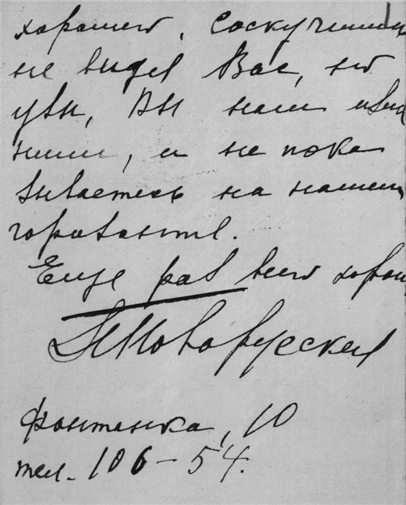 хорошего. Соскучились
не видя Вас, но
увы, Вы нам изме
нили, и не пока
зываетесь на нашем
горизонте.
Еще раз всего хорош
Новорусский
Фонтанка, 10
тел. 106-54.